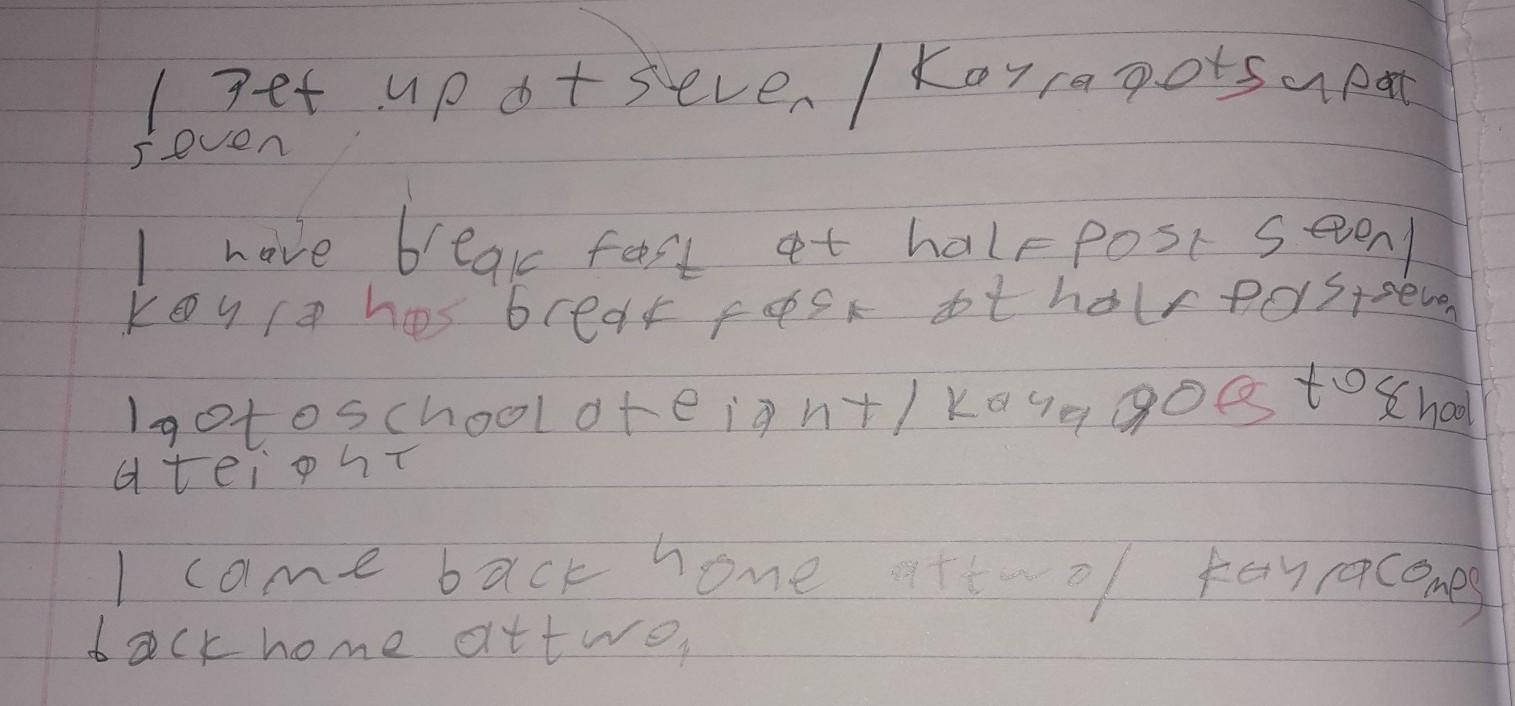 I get up at seven / Kayra gots up at
seven
I have break fast at half past seven /
kayra has break fast at half past seven
I go to school at eight / kaya goes to school
at eight
I come back home at two / kayra comes
back home at two,